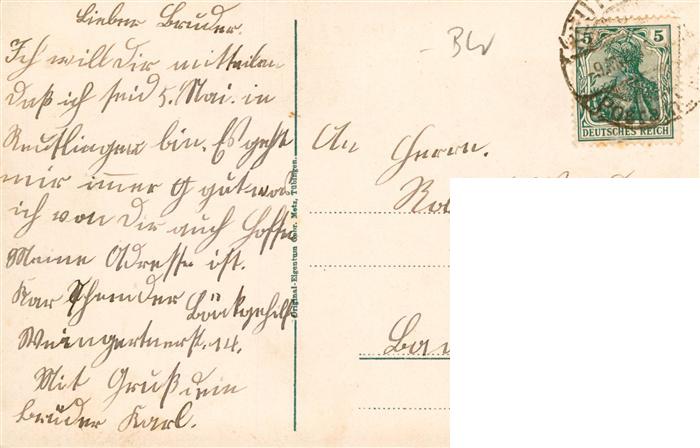 Lieber Bruder.
Ich will Dir mitteilen
daß ich seid 5. Mai. in
Reutlingen bin. Es geht
mir imer gut was
ich von Dir auch hoffe
Meine Adresse ist.
Kar Bäckgehilf
Weingärtnerst. 14.
Mit Gruß dein
Bruder Karl.
Original-Eigentum Gebr. Metz, Tübingen.
BW
5 5
DEUTSCHES REICH
An Herrn.